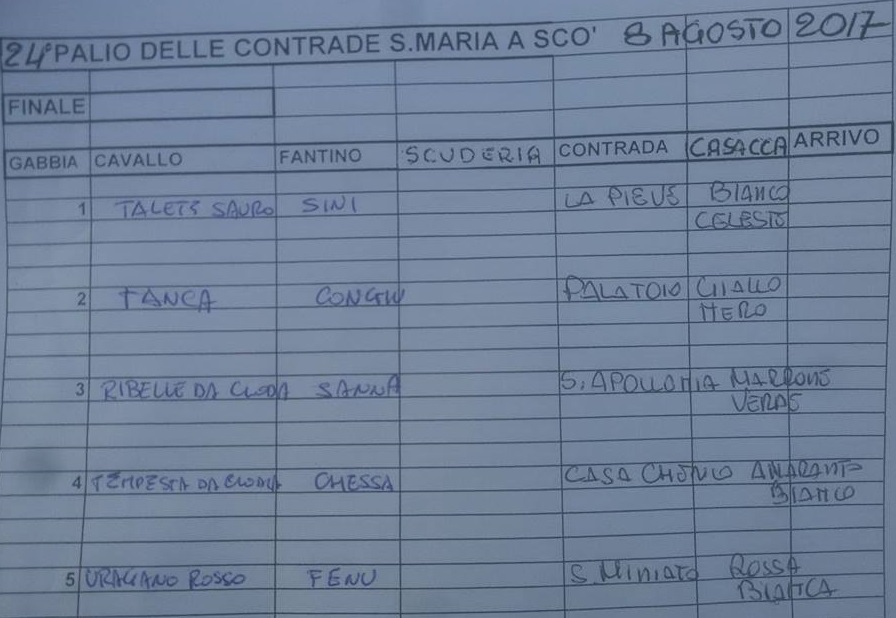 24° PALIO DELLE CONTRADE S.MARIA A SCO' 8 AGOSTO 2017
FINALE
GABBIA CAVALLO FANTINO SCUDERIA CONTRADA CASACCA ARRIVO
1 SAURO SINI LA PIEVE BIANCO
CELESTE
2 TANCA CONGIU PALATOIO GIALLO
NERO
3 RIBELLE DA CLODIA SANNA S. APOLLONIA MARRONE
VERDE
4 TEMPESTA DA CLODIA CHESSA CASA AMARANTO
BIANCO
5 URAGANO ROSSO FENU S. Miniato ROSSA
BIANCA